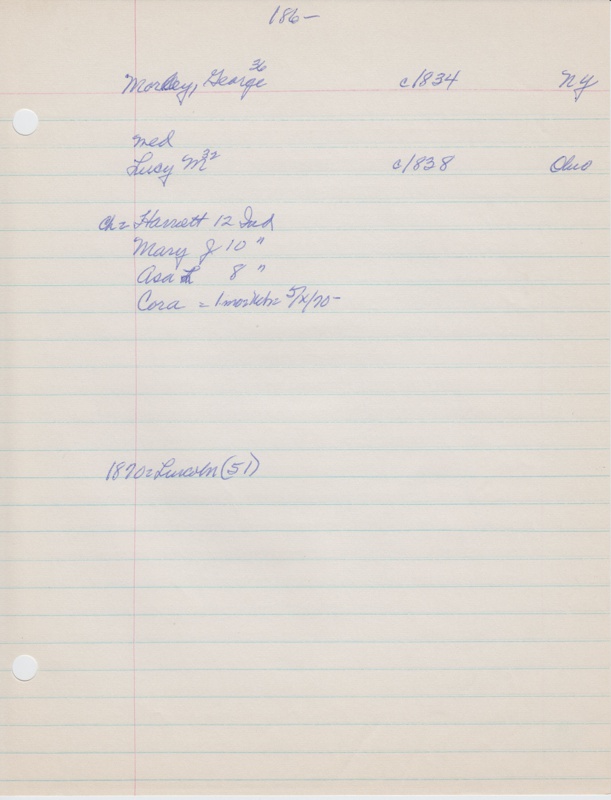 186-
Morley, George 36 c/1834 Ny
med
Lucy M 32 c/1838 Ohio
Ch= Harrott 12 Ind
Mary J 10 "
Asa 8 "
Cora = 1 month = 5/x/70-
1870=Lincoln (51)